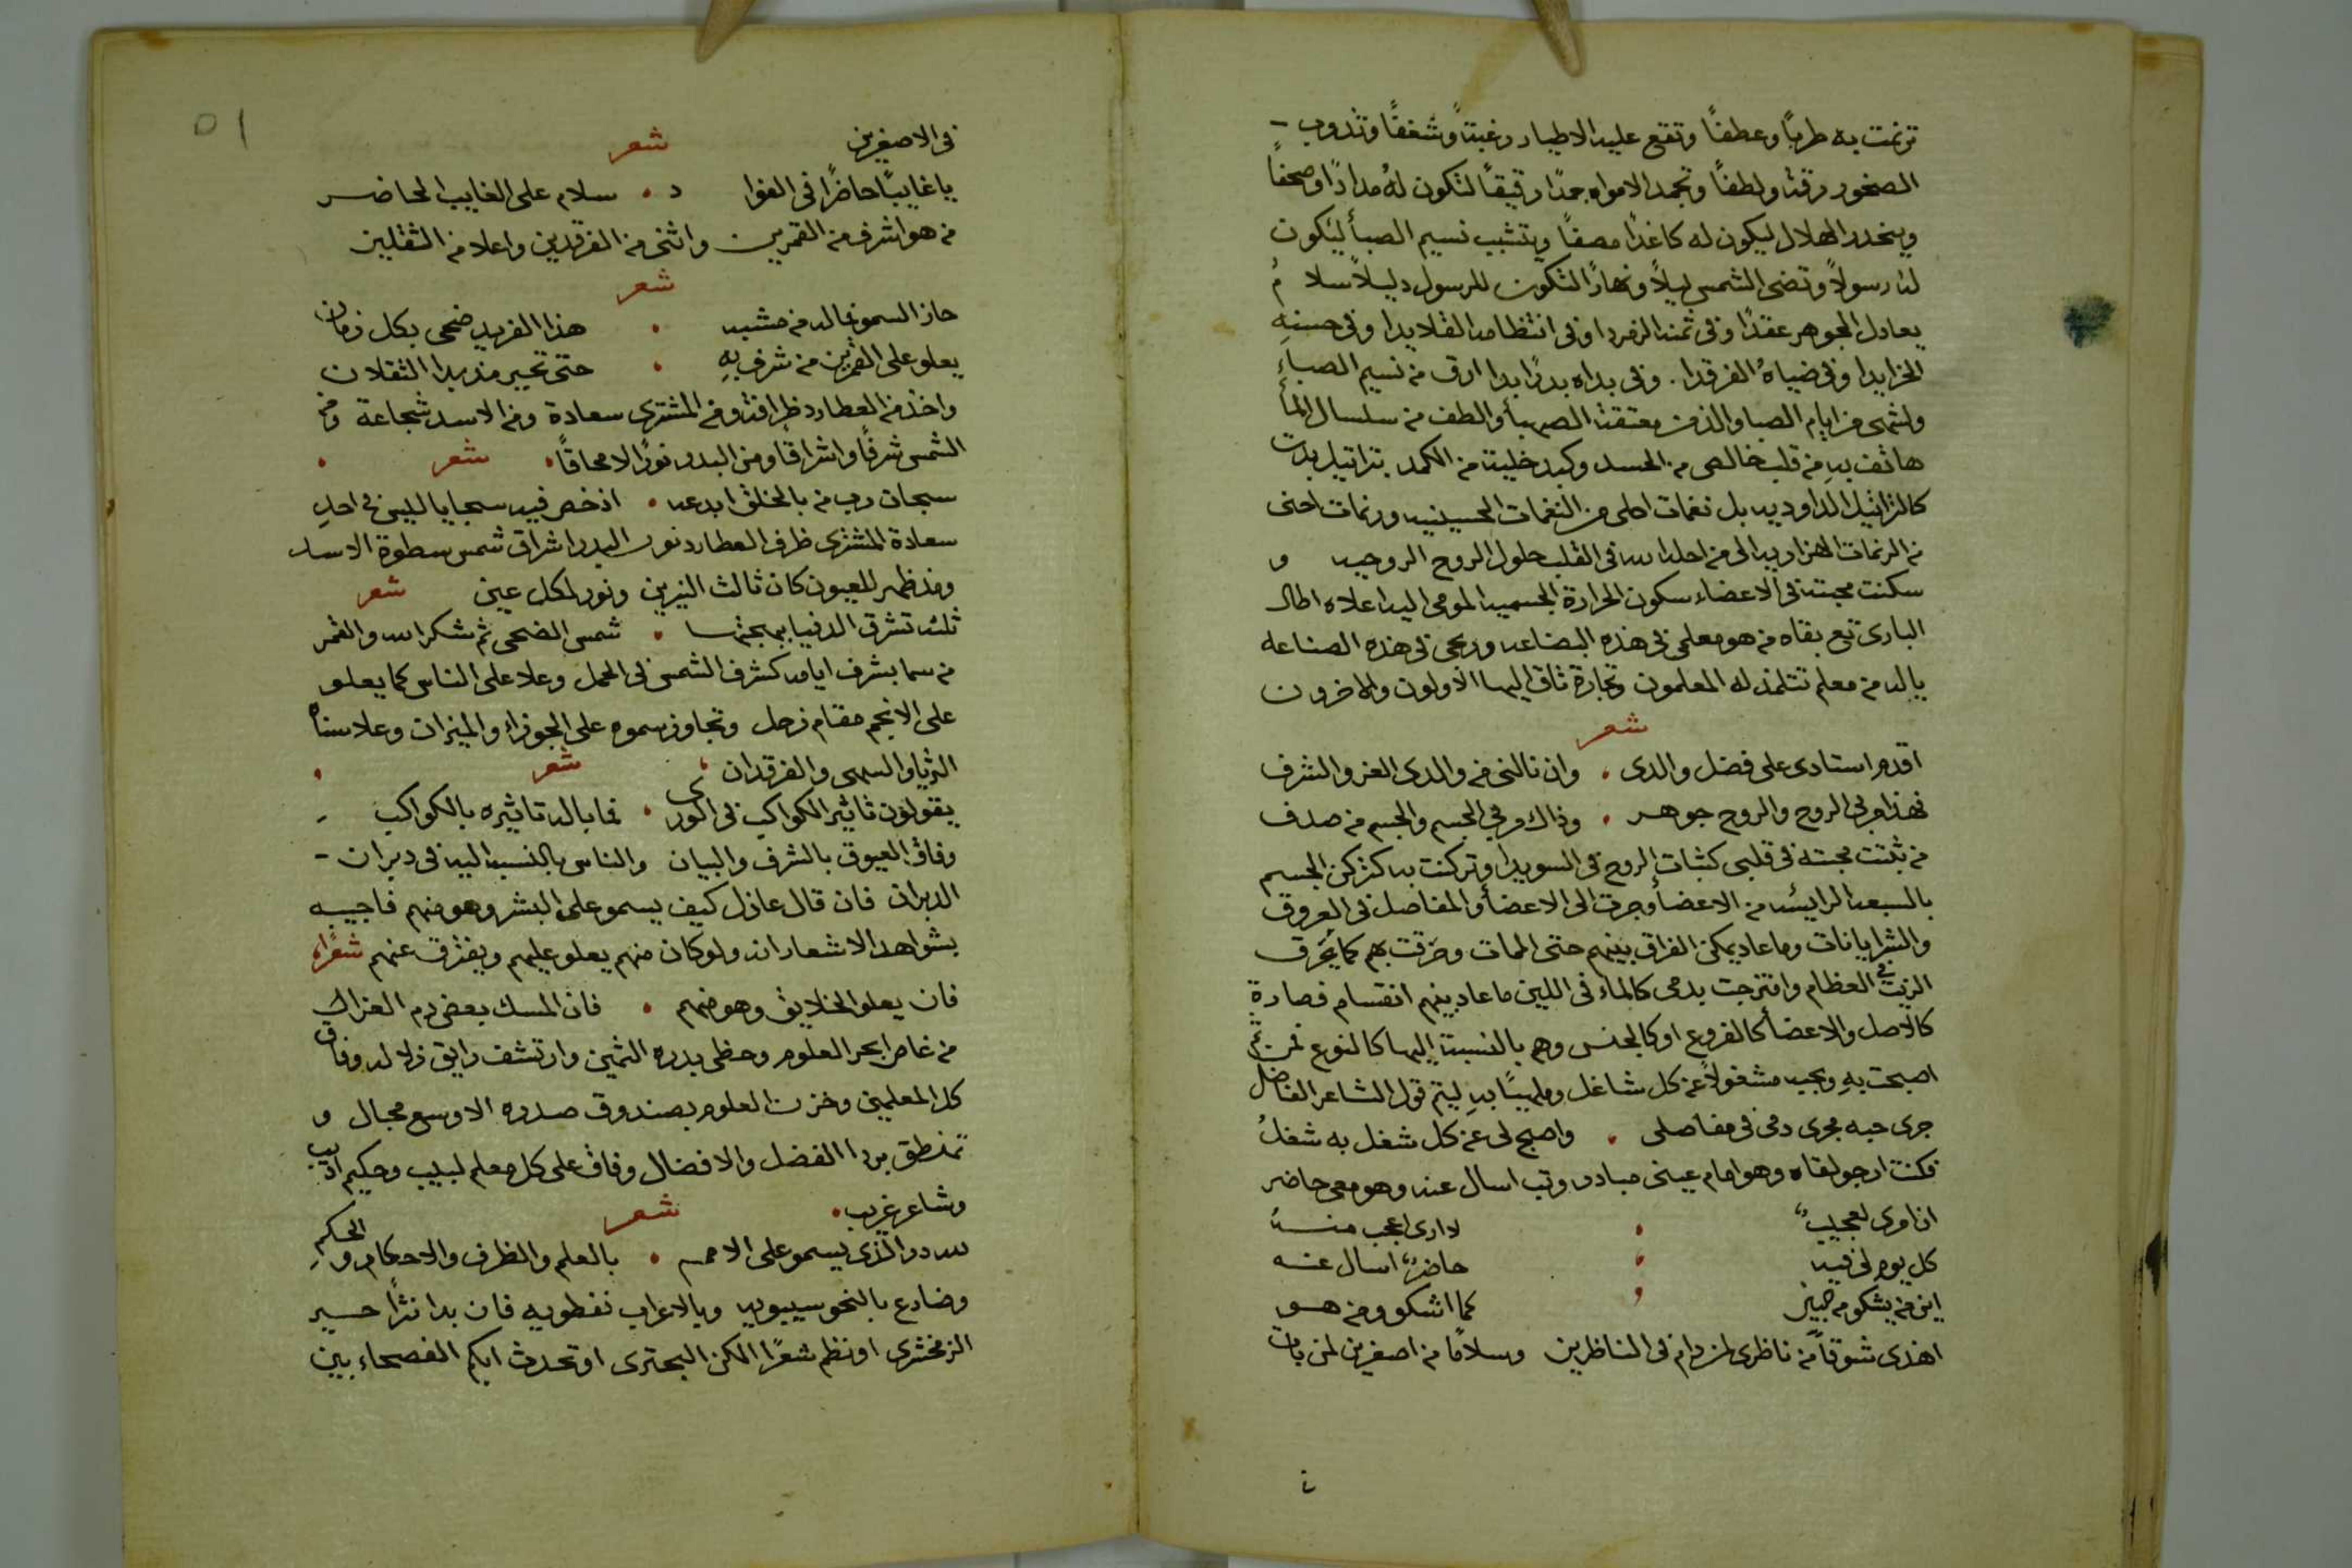 ترنمت به طربًا وعطفًا وتقع عليه الاطيار رغبتةً وشغفًا وتذوب
الصخور رقة ولطفًا وتجمد الامواه جمدًا رقيقًا لتكون لهُ مدادًا وصحفًا
وينحدر الهلال ليكون له كاغدًا مصفًا ويتشبب نسيم الصبأ ليكون
له رسولاً وتضى الشمس ليلاً ونهارًا لتكون للرسول دليلاً سلامُ
يعادل الجوهر عقدًا وفى ثمنه الزمردا وفى انتظامه القلايدا وفى حسنهِ
الخرايدا وفى ضياهُ الفرقدا . وفى بداه بدرًا بدا ارق من نسيم الصباءِ
واشهى من ايام الصبا والذ من معتقة الصهبأ والطف من سلسال المأ
هاتف بهِ من قلب خالص من الحسد وكبد خلية من الكمد بتراتيل بدت
كالتراتيل الداوديه بل نغمات احلى من النغمات الحسينيه ورنمات احنى
من الرنمات الهزاريه الى من احله الله فى القلب حلول الروح الروحيه و
سكنت محبته فى الاعضاء سكون الحرارة الجسميه المومى اليه اعلاه اطال
البارى تع بقاه من هو معلمى فى هذه البضاعه وربحى فى هذه الصناعه
ياله من معلم تتلمذ له المعلمون وتجارة تاق اليها الاولون والاخرون
شعر
اقدم استادى على فضل والدى . وان نالنى من والدى العز والشرف
فهذا مربى الروح والروح جوهر . وذاك مربى الجسم والجسم من صدف
من ثبتت محبته فى قلبى كثبات الروح فى السويدا وتركنت به كتركن الجسم
بالسبعه الرايسه من الاعضأ وجرت الى الاعضأ والمفاصل فى العروق
والشرايانات وما عاد يمكن الفراق بينهم حتى الممات وخرقت بهم كما يخرق
الزيت فى العظام وامتزجت بدمى كالماء فى اللبن ما عاد بينهم انقسام فصارة
كالاصل والاعضأ كالفروع او كالجنس وهم بالنسبة اليها كالنوع فمن ثم
اصبحت بهِ وبحبه مشغولاً عن كل شاغل وملهيًا بهِ ليتم قول الشاعر الفاضل
جرى حبه مجرى دمى فى مفاصلى . واصبح لى عن كل شغل به شغلُ
فكنت ارجو لقاه وهو امام عينى مبادر وتب اسال عنه وهو معى حاضر
ان امرى لعجيبٌ . لا ارى اعجب منهُ
كل يوم لى فيه . حاضرٌ اسال عنه
اين من يشكو من كما اشكو ومن هو
اهذى شوقًا من ناظرى لمن دام فى الناظرين وسلامًا من اصغرين لمن بات

٥١
فى الاصغرين شعر
ياغايبًا حاضرًا فى الفوا د . سلام على الغايب الحاضر
من هو اشرف من القمرين واثنى من الفرقدين واعلا من الثقلين
شعر
حاز السمو فماله من مشبه . هذا الفريد ضحى بكل زمان
يعلو على القمرين من شرف بهِ . حتى تحير مذ بدا الثقلان
واخذ من العطارد ظرافة ومن المشترى سعادة ومن الاسد شجاعة ومن
الشمس شرفًا واشراقًا ومن البدر نورًا لا محاقًا. شعر
سبحان رب من بالخلق ابدعه . اذ خص فيه سجايا ليس فى احدِ
سعادة المشترى ظرف العطارد نور البدر اشراق شمس سطوة الاسد
ومذ ظهر للعيون كان ثالث النيرين ونور لكل عين شعر
ثلثه تشرق الدنيا ببهجتها . شمس الضحى ثم شكر الله والقمر
من سما بشرف ايامه كشرف الشمس فى الحمل وعلا على الناس كما يعلو
على الانجم مقام زحل وتجاوز سموه على الجوزاء والميزان وعلا سناه
الثريا والسهى والفرقدان شعر
يقولون تاثير الكواكب فى الورى . فما باله تاثيره بالكواكب
وفاق العيوق بالشرف والبيان والناس بالنسبه اليه فى دبران
الدبران فان قال عاذل كيف يسمو على البشر وهو منهم فاجيبه
بشواهد الاشعار انه ولو كان منهم يعلو عليهم ويفترق عنهم شعرًا
فان يعلو الخلايق وهو منهم . فان المسك بعض دم الغزال
من غاص ابحر العلوم وحظى بدره الثمين وارتشف رايق زلاله وفاق
كل المعلمين وخزن العلوم بصندوق صدره الاوسع مجال و
تمنطق بردا الفضل والافضال وفاق على كل معلم لبيب وحكيم اديب
وشاعر غريب . شعر
لله در الذى يسمو على الامم . بالعلم والظرف والاحكام والحكمِ
وضارع بالنحو سيبويه وبالاعراب نفطويه فان بدا نثرًا حسير
الزمخشرى او نظم شعرًا الكن البحترى او تحدث ابكم الفصحاء بين